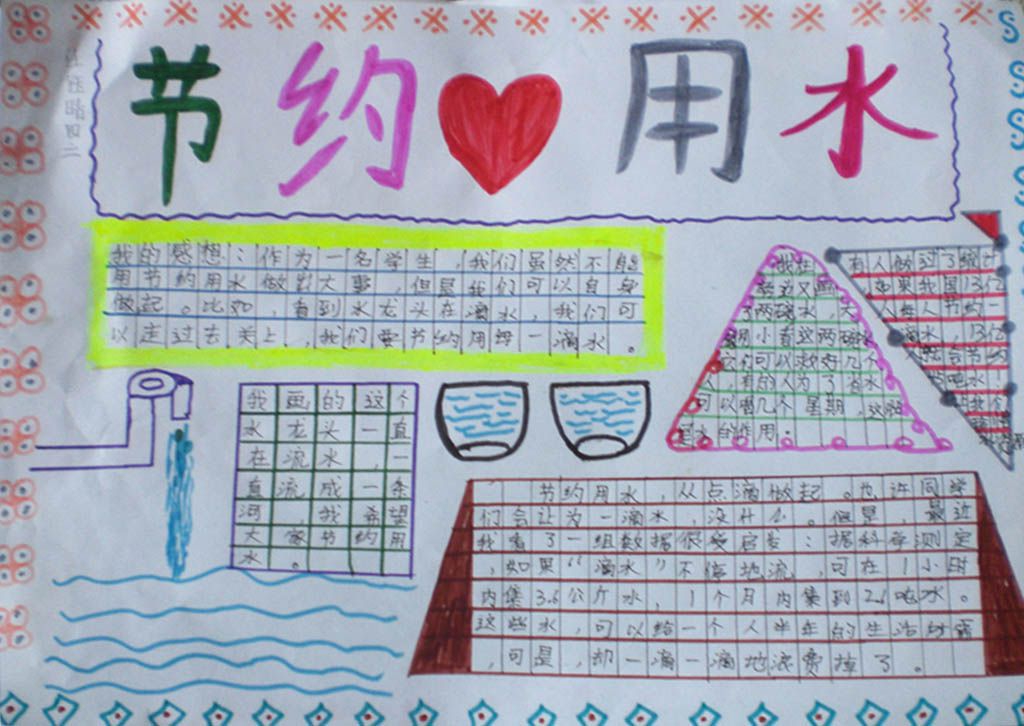 节约用水
我的感想：作为一名学生，我们虽然不能
用节约用水做彰大事，但是我们可以自身
做起。比如，看到水龙头在滴水，我们可
以走过去关上，我们要节约用每一滴水。
我画的这个
水龙头一直
在流水，一
直流成一条
河，我希望
大家节约用
水。
我在
旁边又画
了两碗水，
小看这两碗
它们可以救好几个
人，有的人为了有水
可以喝几个星期，这就
是水的作用。
有人做过了统计
如果我国13亿
每人节约一
滴水，13亿
节约用水，从点滴做起。也许同学
们会认为一滴水，没什么。但是，最近
我看了一组数据很受启发：据科学测定
，如果“滴水”不停地流，可在1小时
内集3.6公斤水，1个月内集到2.6吨水。
这些水，可以给一个人半年的生活所需
，可是，却一滴一滴地浪费掉了。